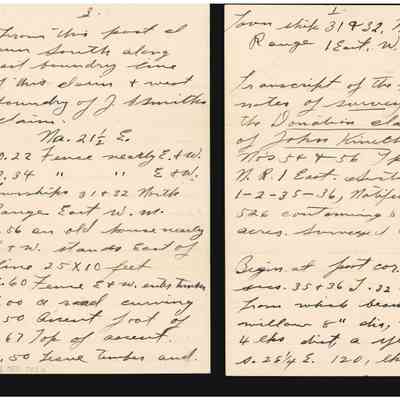 3.
From this post I
run South along
east boundry line
of this claim & west
boundry of J Smiths
claim.
Na. 21½ E.
0.22 Fence nearly E. & W.
2.34 " " E & W.
Townships 31 & 32 North
Range East W. M.
.56 an old house nearly
S W. stands East of
line 25 X 10 feet
.60 Fence E & W. enter timber
.00 a road curving
.50 Ascent foot of
.67 Top of ascent.
.50 Leave timber and
1
Town ship 31 & 32, N
Range 1 East, W.
Transcript of the
notes of survey
the Donation cla
of John Kineth
Nos 54 & 56 Tp
N. R. 1 East. Sect
1-2-35-36, Notif
526 containing
acres. Surveyed
Begin at post cor.
secs. 35 & 36 T. 32
from which bears
willow 8" dis,
4 lks dist a
S. 28¼ E. 120, th